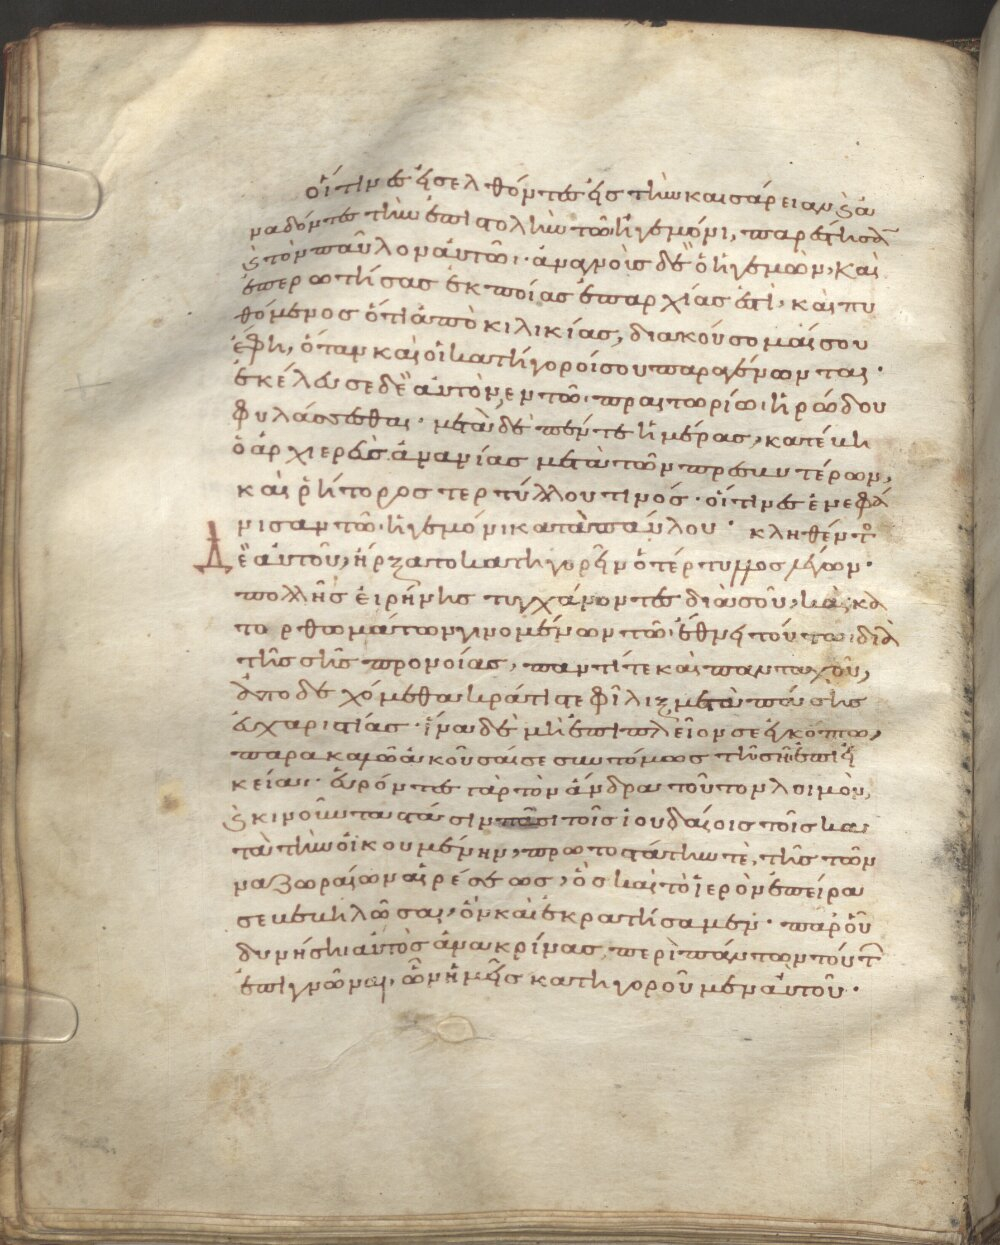 οἵτινες εἰσελθόντες εἰς τὴν καισάρειαν, καὶ ἀ
ναδόντες τὴν ἐπιστολὴν τῶ ἡγεμόνι, παρέστησαν
καὶ τὸν παῦλον αὐτῶ· ἀναγνοὺς δὲ ὁ ἡγεμὼν, καὶ
ἐπερωτήσας ἐκ ποίας ἐπαρχίας ἐστὶ, καὶ πυ
θόμενος ὅτι ἀπὸ κιλικίας, διακούσομαί σου
ἔφη, ὅταν καὶ οἱ κατήγοροί σου παραγένωνται·
ἐκέλευσε δὲ αὐτὸν, ἐν τῶ πραιτωρίω ἡρώδου
φυλάσσεσθαι· μετὰ δὲ πέντε ἡμέρας, κατέβη
ὁ ἀρχιερεὺς ἀνανίας μετὰ τῶν πρεσβυτέρων,
καὶ ῥήτορος τερτύλλου τινός· οἵτινες ἐνεφά
νισαν τῶ ἡγεμόνι κατὰ παύλου· κληθέντος
Δὲ αὐτοῦ, ἤρξατο κατηγορεῖν ὁ τέρτυλλος λέγων·
πολλῆς εἰρήνης τυγχάνοντες διὰ σοῦ, καὶ κα
τορθωμάτων γινομένων τῶ ἔθνει τούτω διὰ
τῆς σῆς προνοίας, πάντη τε καὶ πανταχοῦ,
ἀποδεχόμεθα κράτιστε φῖλιξ μετὰ πάσης
εὐχαριστίας· ἵνα δὲ μὴ ἐπιπλεῖον σε ἐγκόπτω,
παρακαλῶ ἀκοῦσαί σε συντόμως τῆ σῆ ἐπιει
κεία· εὑρόντες γὰρ τὸν ἄνδρα τοῦτον λοιμὸν,
καὶ κινοῦντα στάσιν πᾶσι τοῖς ἰουδαίοις τοῖς κα
τὰ τὴν οἰκουμένην, πρωτοστάτην τὲ, τῆς τῶν
ναζωραίων αἱρέσεως, ὃς καὶ τὸ ἱερὸν ἐπείρα
σε βεβηλῶσαι, ὃν καὶ ἐκρατήσαμεν· παρ' οὗ
δυνήση αὐτὸς ἀνακρίνας περὶ πάντων τούτων
ἐπιγνῶναι, ὧν ἡμεῖς κατηγοροῦμεν αὐτοῦ·